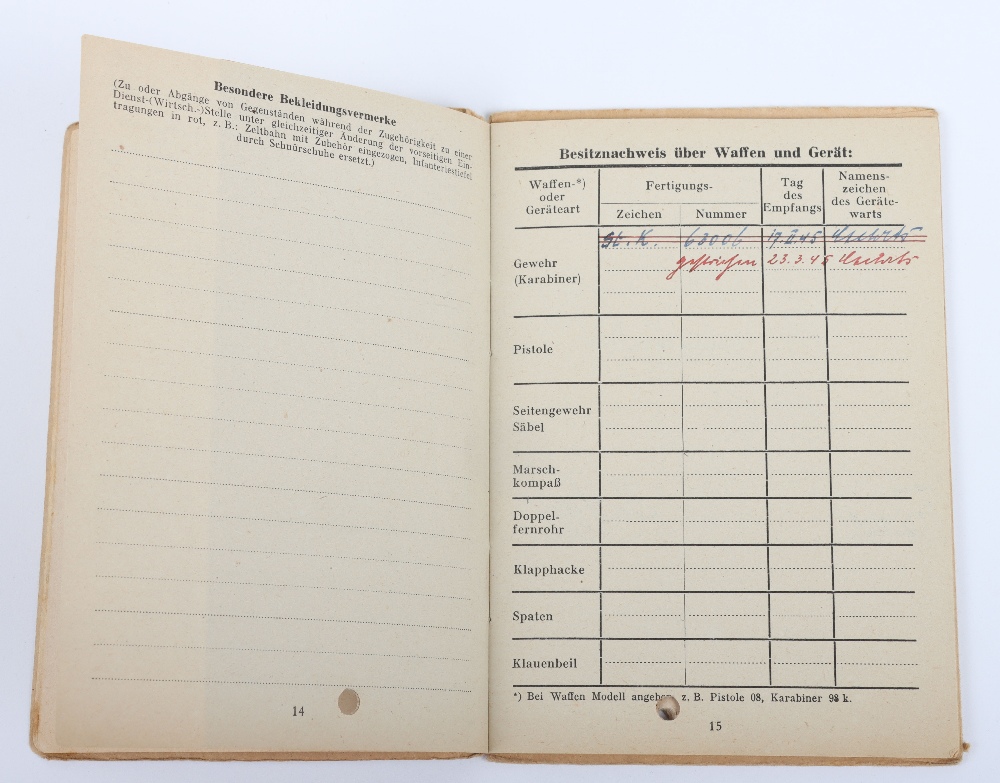 Besondere Bekleidungsvermerke
(Zu oder Abgänge von Gegenständen während der Zugehörigkeit zu einer
Dienst-(Wirtsch.-)Stelle unter gleichzeitiger Änderung der vorseitigen Ein-
tragungen in rot, z. B.: Zeltbahn mit Zubehör eingezogen, Infanteriestiefel
durch Schnürschuhe ersetzt.)
14
Besitznachweis über Waffen und Gerät:
Waffen-*)
oder
Geräteart
Fertigungs-
Zeichen
Nummer
Tag
des
Empfangs
Namens-
zeichen
des Geräte-
warts
Gewehr
(Karabiner)
St. K. 63006 17.II.45
gestrichen 23.3.45
Pistole
Seitengewehr
Säbel
Marsch-
kompaß
Doppel-
fernrohr
Klapphacke
Spaten
Klauenbeil
*) Bei Waffen Modell angeben, z. B. Pistole 08, Karabiner 98 k.
15